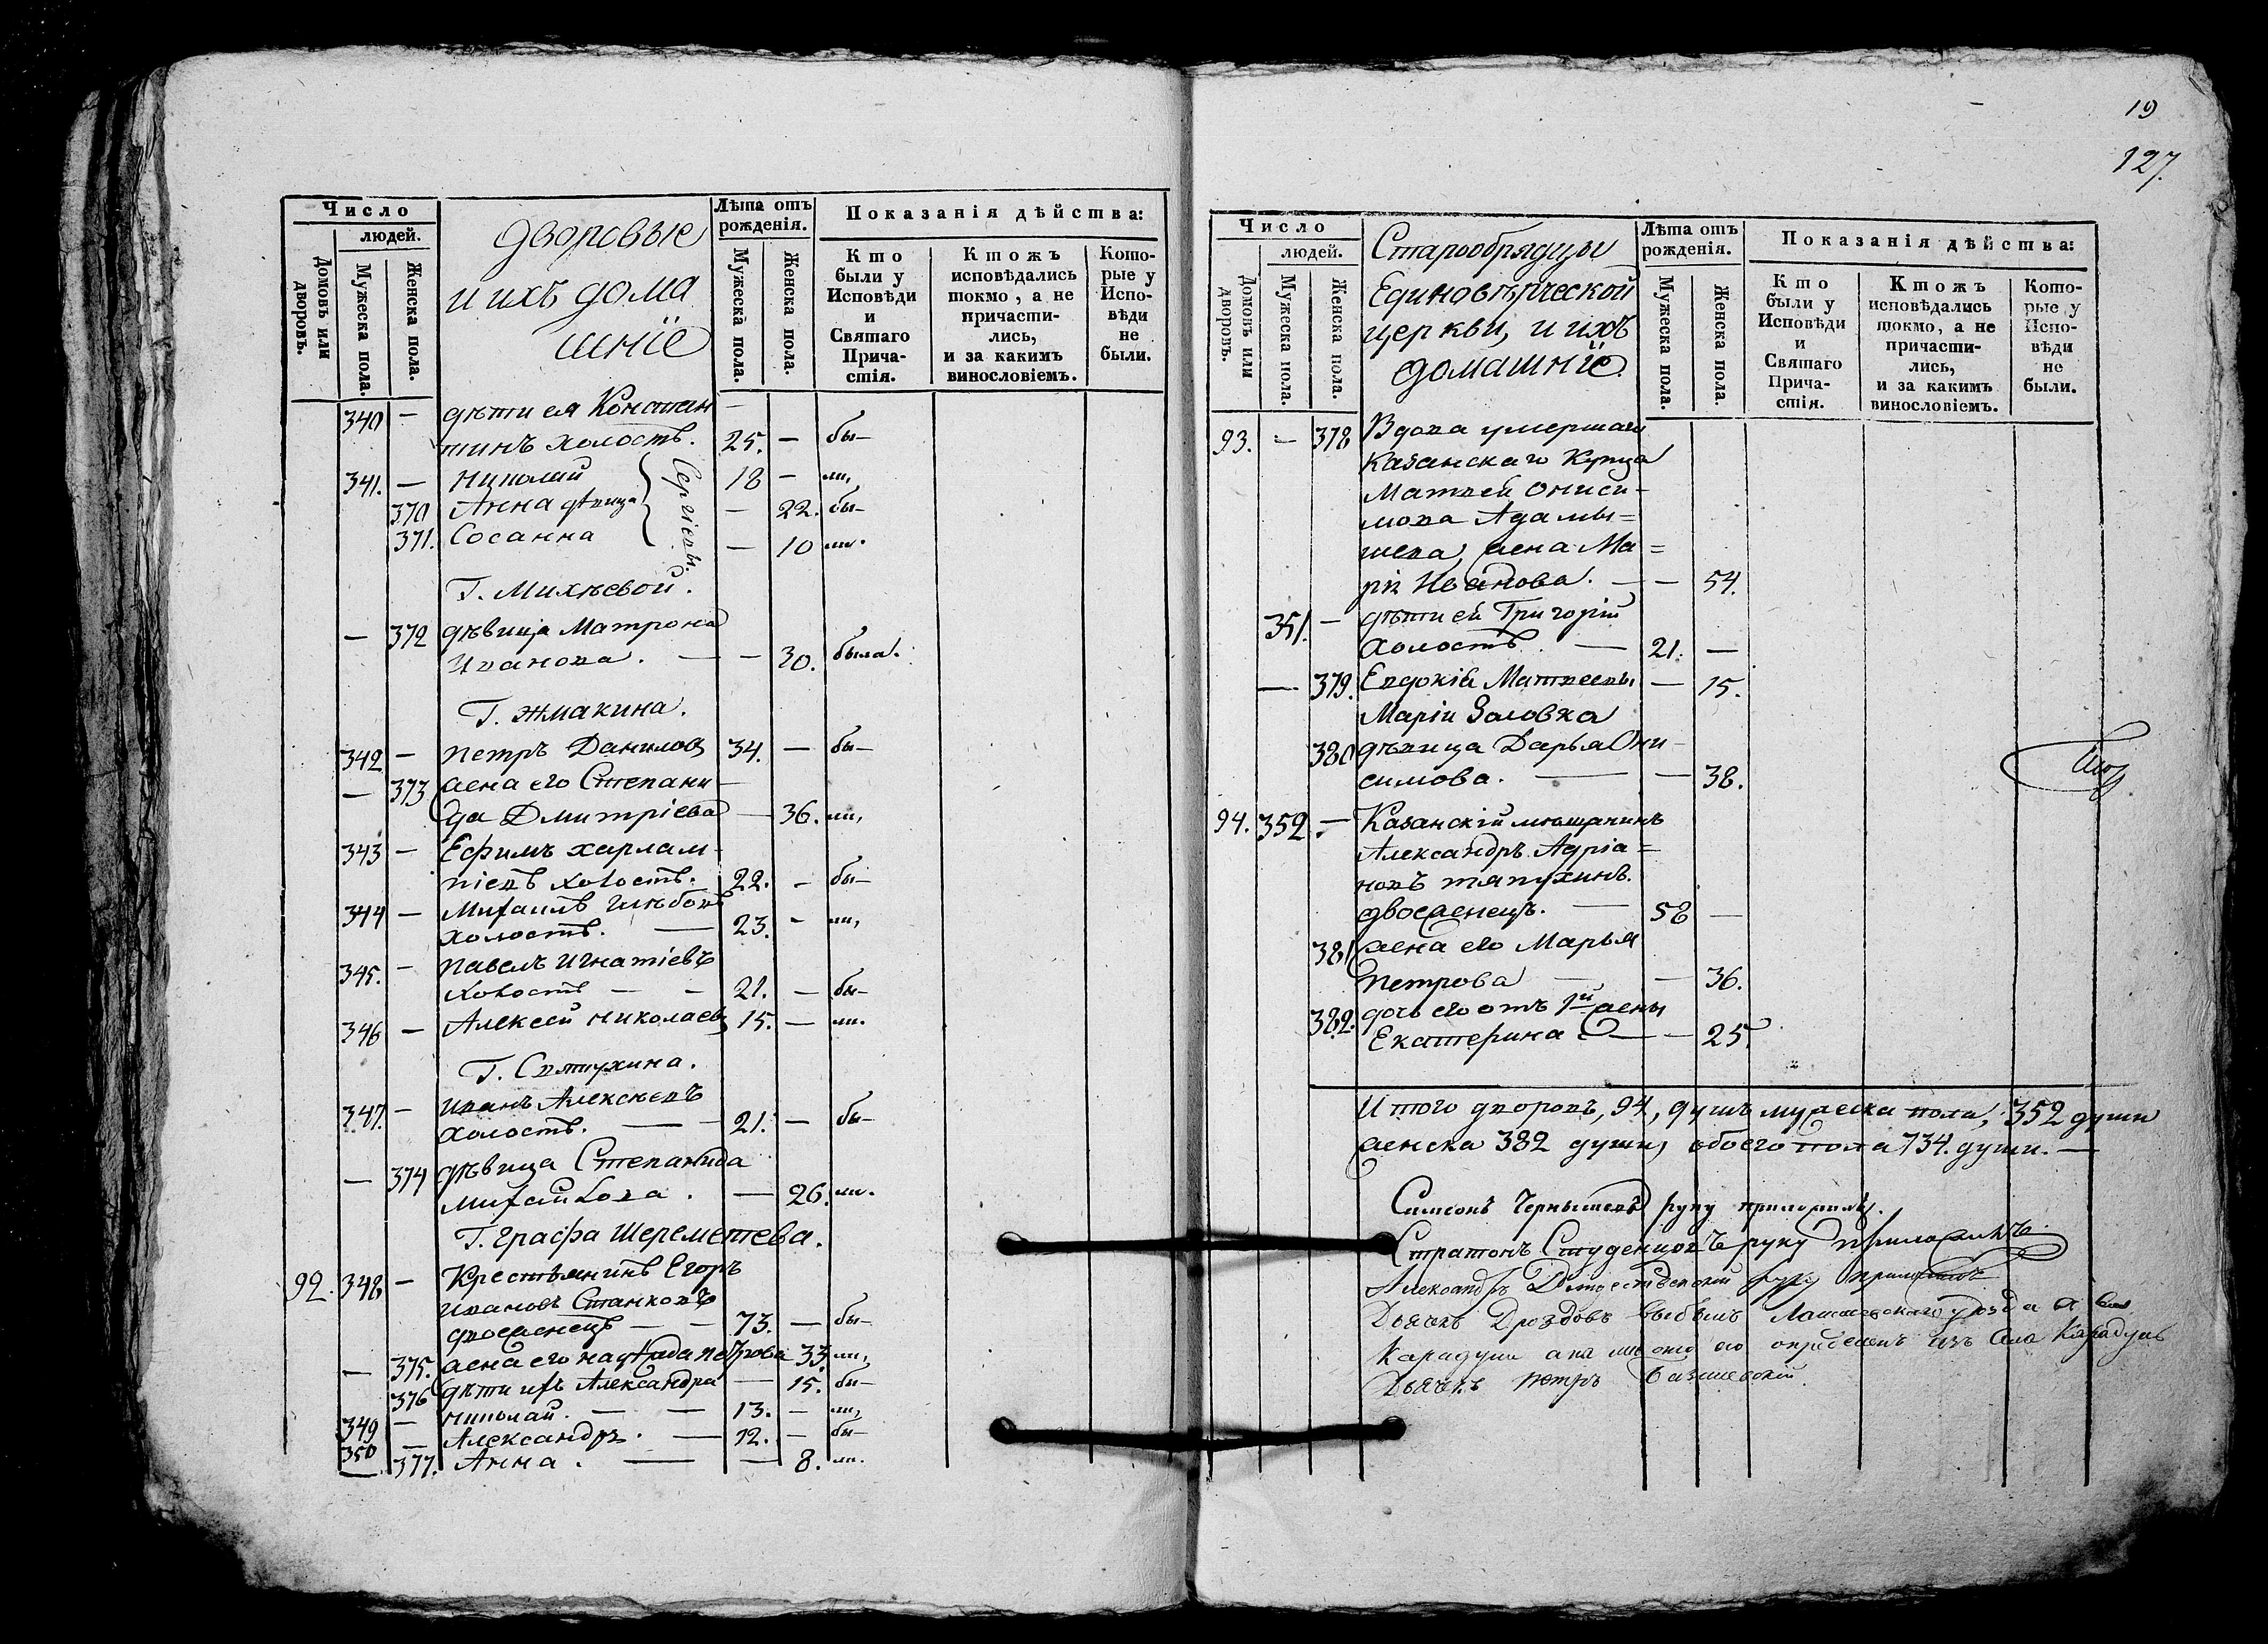 Число
людей.
Домовъ или дворовъ.
Мужеска пола.
Женска пола.
Дворовые
и ихъ дома
шнiе
Лѣта отъ рожденiя.
Мужеска пола.
Женска пола.
Показанiя дѣйства:
Кто были у Исповѣди и Святаго Прича- стiя.
Ктожъ исповѣдались токмо, а не причасти- лись, и за какимъ винословiемъ.
Кото- рые у Испо- вѣди не были.
340 — дѣти ея Констан —
тинъ холостъ. 25. — бы—
341. — Николай 18 — ли,
370 Анна дѣвица — 22. бы—
371. Сосанна — 10 ли.
Сергiевы.
Г. Михѣевой.
— 372 дѣвица Матрона
Иванова. — — 30. была.
Г. Жмакина.
342 — Петръ Даниловъ 34. — бы—
— 373 жена его Степани —
да Дмитрiева — 36. ли,
343 — Ефимъ Харлам-
пiевъ холостъ. 22. — бы—
344 — Михаилъ Глѣбовъ
холостъ. — 23. — ли,
345. — Павелъ Игнатiевъ
холостъ — — 21. — бы—
346 — Алексей Николаевъ 15. — ли.
347. — Иванъ Алексѣевъ
холостъ. — 21. — бы—
— 374 дѣвица Степанида
Михайлова. — 26. ли.
Г. Графа Шереметева.
92. 348 — Крестьянинъ Егоръ
Ивановъ Станковъ
двоеженецъ — — 73. — бы—
— 375. жена его Надѣжда Петрова 33. ли,
376 дѣти ихъ Александра — 15. бы—
349 — Николай. — — 13. — ли,
350 — Александръ. — 12. — бы—
— 377. Анна. — — 8. ли.
19
127.
Число
людей.
Домовъ или дворовъ.
Мужеска пола.
Женска пола.
Старообрядцы
Единовѣрческой
церкви, и ихъ
домашнiе.
Лѣта отъ рожденiя.
Мужеска пола.
Женска пола.
Показанiя дѣйства:
Кто были у Исповѣди и Святаго Прича- стiя.
Ктожъ исповѣдались токмо, а не причасти- лись, и за какимъ винословiемъ.
Кото- рые у Испо- вѣди не были.
93. — 378 Вдова умершаго
Казанскаго Купца
Матвей Ониси-
мова Адамы=
шева, жена Ма=
рiя Иванова. — — 54.
351. — дѣти ей Григорiй
холостъ. — 21. —
— 379. Евдокiя Матвеевы — 15.
Марiи Золовка
380 дѣвица Дарья Они-
симова. — — 38.
94. 352. — Казанскiй мѣщанинъ
Александръ Адрiа=
новъ Тяпухинъ.
двоеженецъ. — 58 —
381 жена его Марья
Петрова — — 36.
382. дочь его отъ 1й жены
Екатерина — — 25.
Итого дворовъ, 94, душъ мужеска пола, 352 души
женска 382 души, обоего пола 734. души. —
Симеонъ Чернышевъ руку приложилъ.
Стратонъ Студенцовъ руку приложилъ.
Александръ руку приложилъ
Дьячекъ Дроздовъ выбылъ уѣзда въ село
Карадули а на мѣсто его опредѣленъ изъ села Карадуль
Дьячекъ Петръ